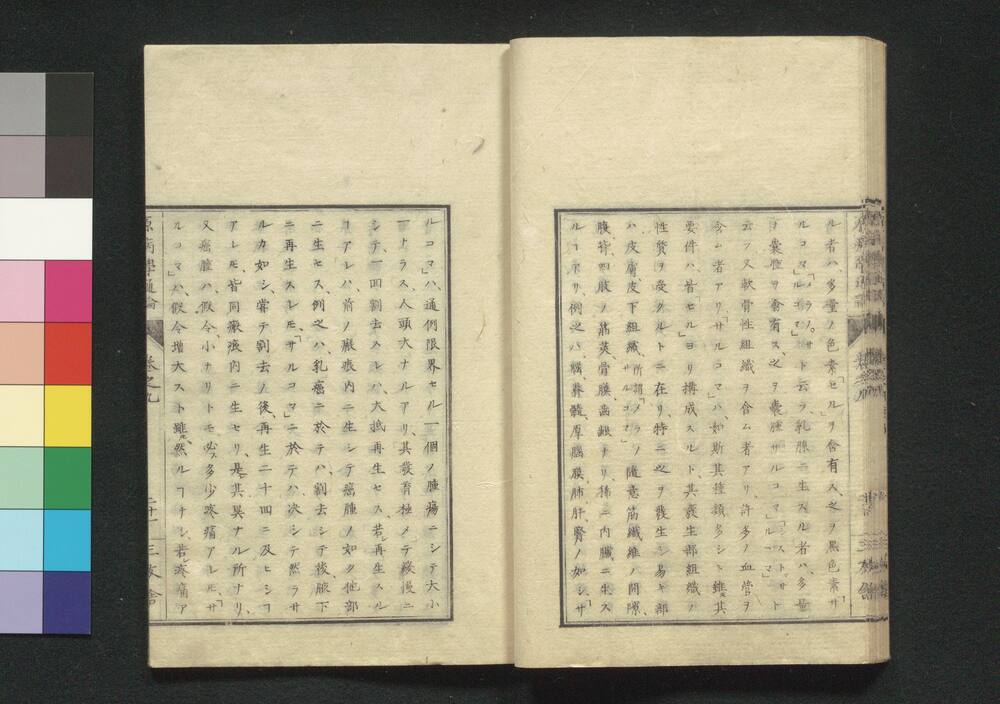 ル者ハ多量ノ色素「セル」ヲ含有ス、之ヲ黑色素「サ
ルコマ」「メラノ、サルコマ」ト云フ、乳腺ニ生スル者ハ、多量
ヲ囊腫ヲ含有ス、之ヲ囊腫サルコマ「シストサルコマ」ト
云フ、又軟骨性組織ヲ含ム者アリ、許多ノ血管ヲ
含ム者アリ、「サルコマ」ハ、如斯其種類多シト雖、其
要件ハ、皆「セル」ヨリ搆成スルト、其發生部組織ノ
性質ヲ受クルトニ在リ、特ニ之ヲ發生シ易キ部
ハ皮膚皮下組織、所謂「メラノサルコマ」ノ隨意筋纖維ノ間隙、
膜特四肢ノ筋莢骨膜齒齦ナリ、稀ニ内臟ニ生ス
ルヿアリ、例之ハ、腦脊髓厚腦膜肺肝腎ノ如シ、「サ
ルコマ」ハ、通例限界セル一個ノ腫瘍ニシテ大小
一トラス、人頭大ナルアリ、其發育極メテ緩慢ニ
シテ、一四割去スレハ、大抵再生セス、若シ再生スル
ヿアレハ、前ノ瘢痕内ニ生シテ癌腫ノ如ク他部
ニ生セス、例之ハ、乳癌ニ於テハ、割去シテ後、腋下
ニ再生スレ𪜈、「サルコマ」ニ於テハ、決シテ然ラサ
ルカ如シ、嘗テ割去ノ後、再生二十四ニ及ヒシヿ
アレ𪜈、皆同瘢痕内ニ生セリ、是其異ナル所ナリ、
又癌腫ハ假令小ナリトモ必ス多少疼痛アレ𪜈、「サ
ルコマ」ハ、假令增大スト雖、然ルヿナシ、若疼痛ア
原病學通論
卷之九
三友舍